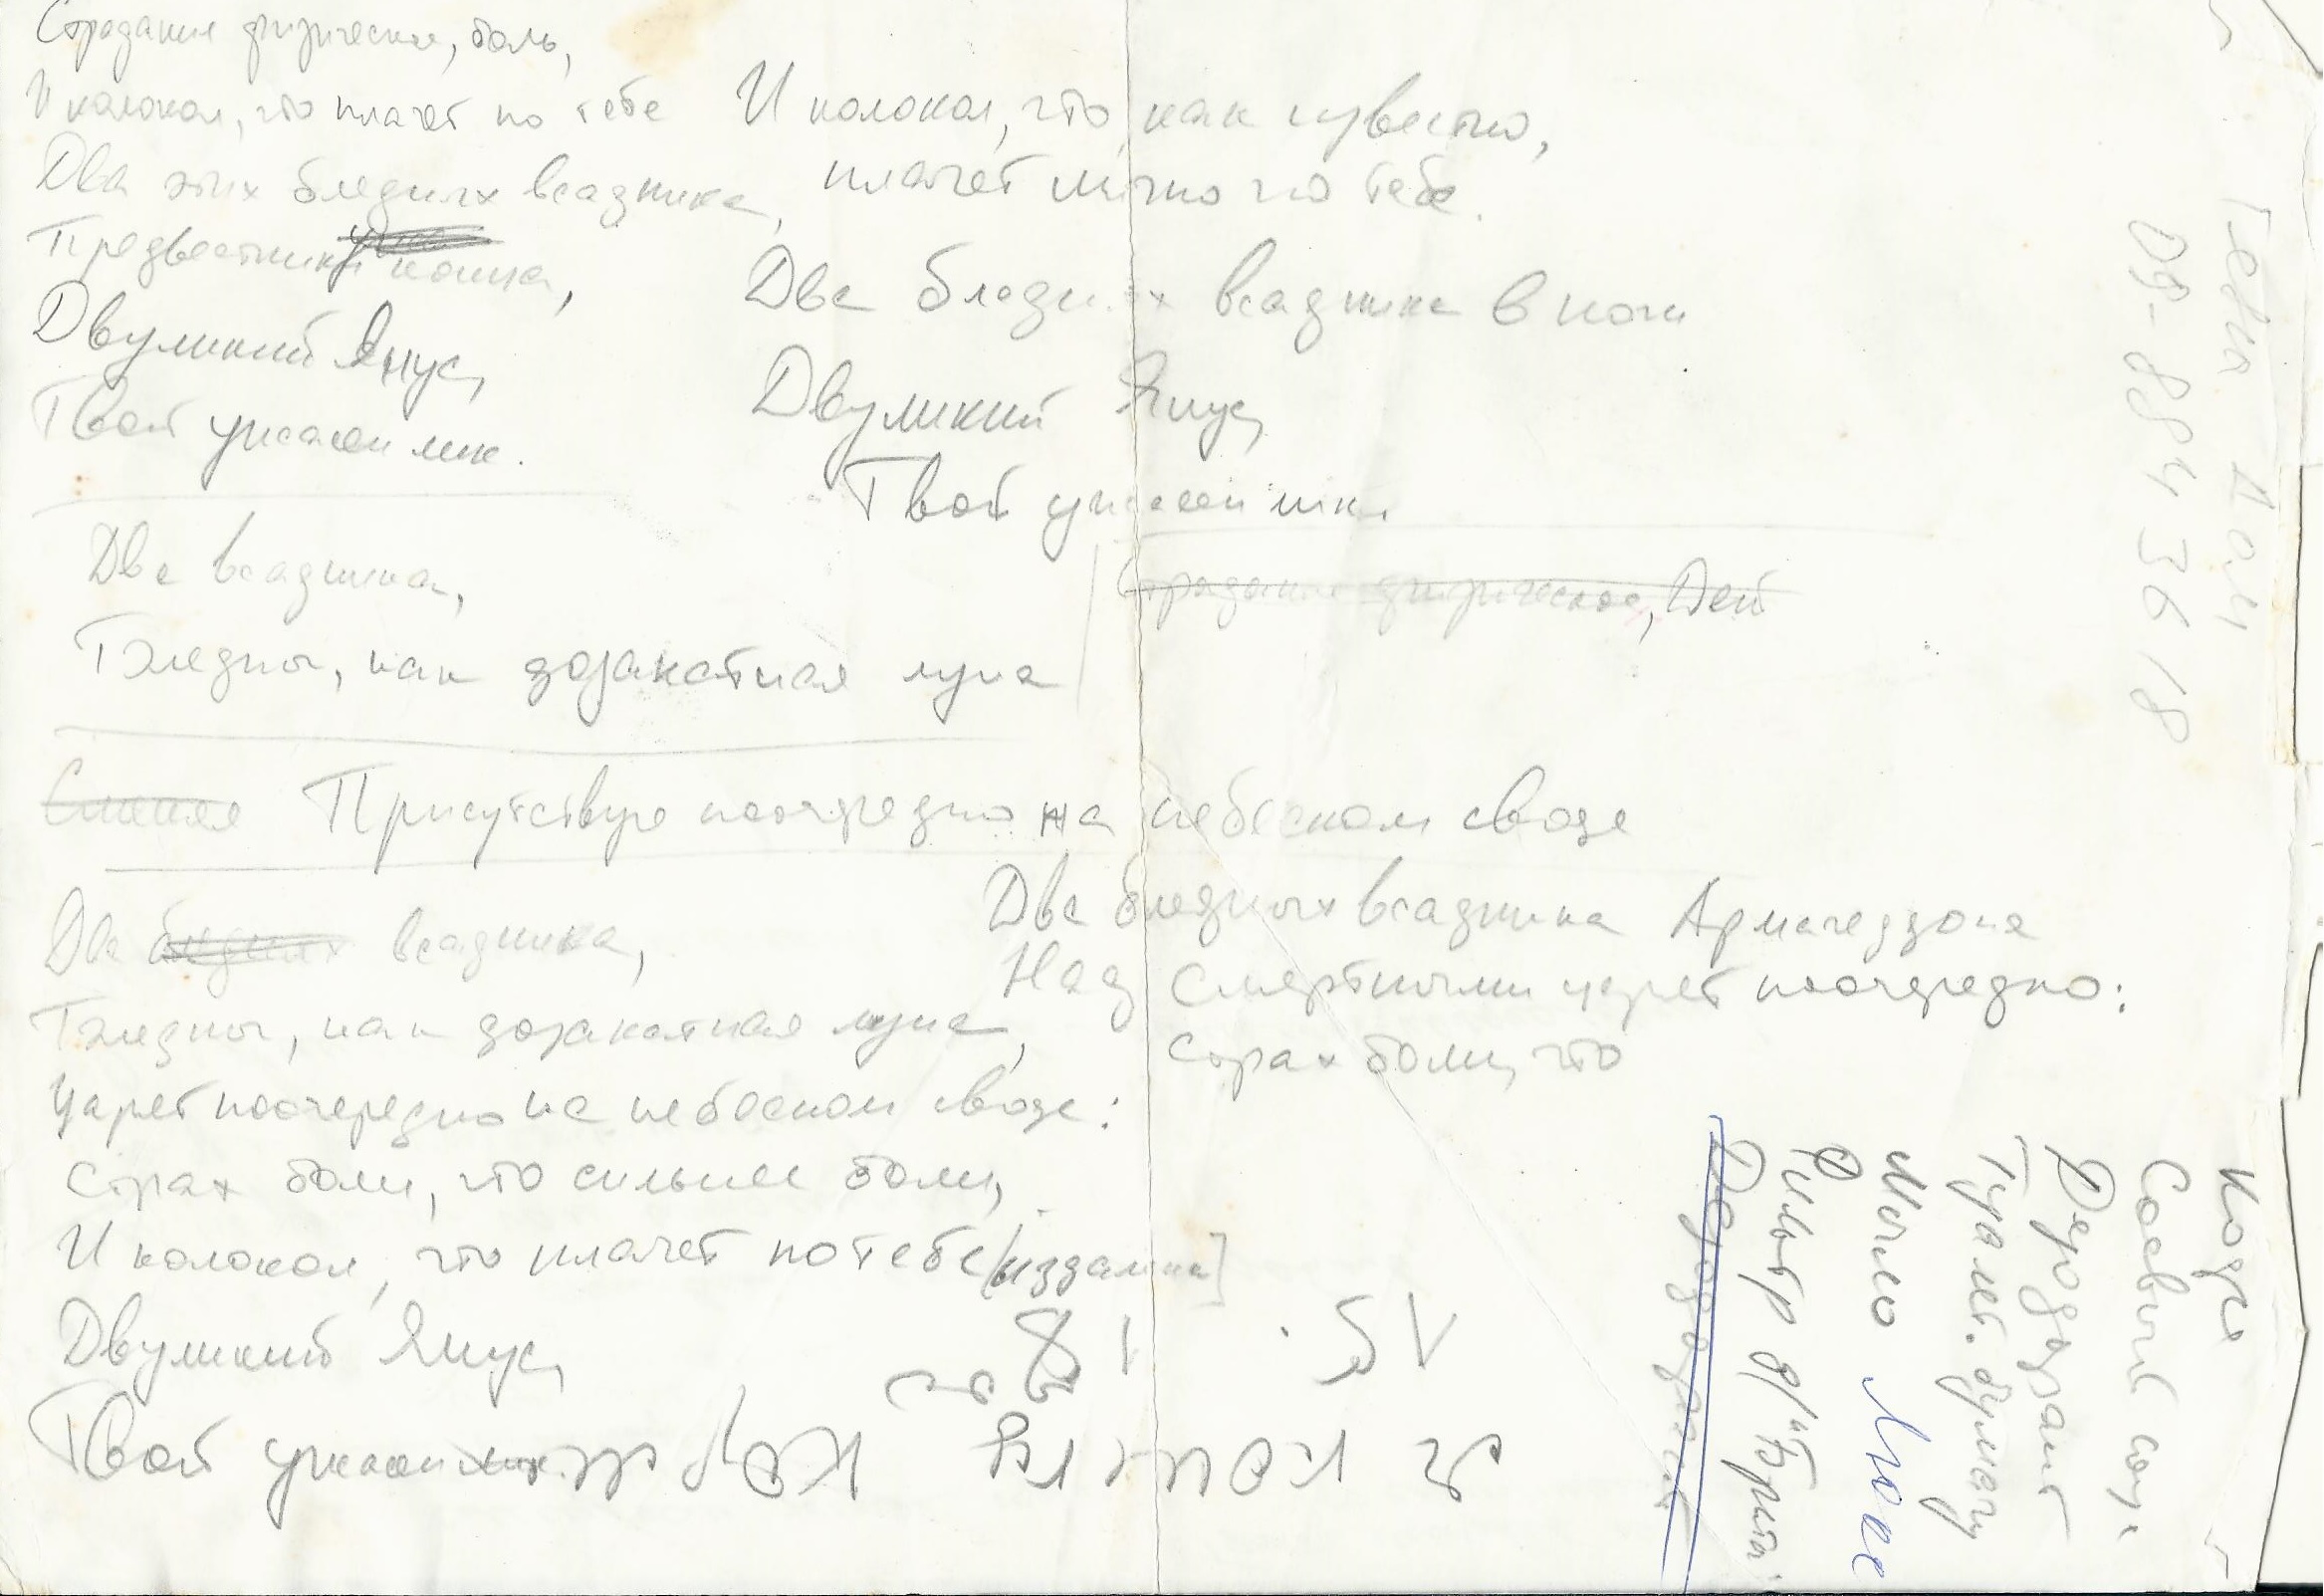 Страдания физические, боль,
И колокол, что плачет по тебе
Два этих бледных всадника,
Предвестники конца,
Двуликий Янус,
Твой ужасен лик.
И колокол, что, как известно,
плачет лично по тебе.
Два бледных всадника в ночи
Двуликий Янус,
Твой ужасен лик.
Два всадника,
Бледны, как дозакатная луна
Страдание физическое, Дей
Присутствуя поочередно на небесном своде
Два бледных всадника,
Бледны, как дозакатная луна,
Царят поочередно на небесном своде:
Страх боли, что сильнее боли,
И колокол, что плачет по тебе [издалика]
Двуликий Янус,
Твой ужасен лик.
Два бледных всадника Армагеддона
Над смертными царят поочередно:
Страх боли, что
09-884 36 18
Кодсы
Соевый соус
Дезодорант
Туалет. бумагу
Мыло Люкс
Фильтр д/"Брита"